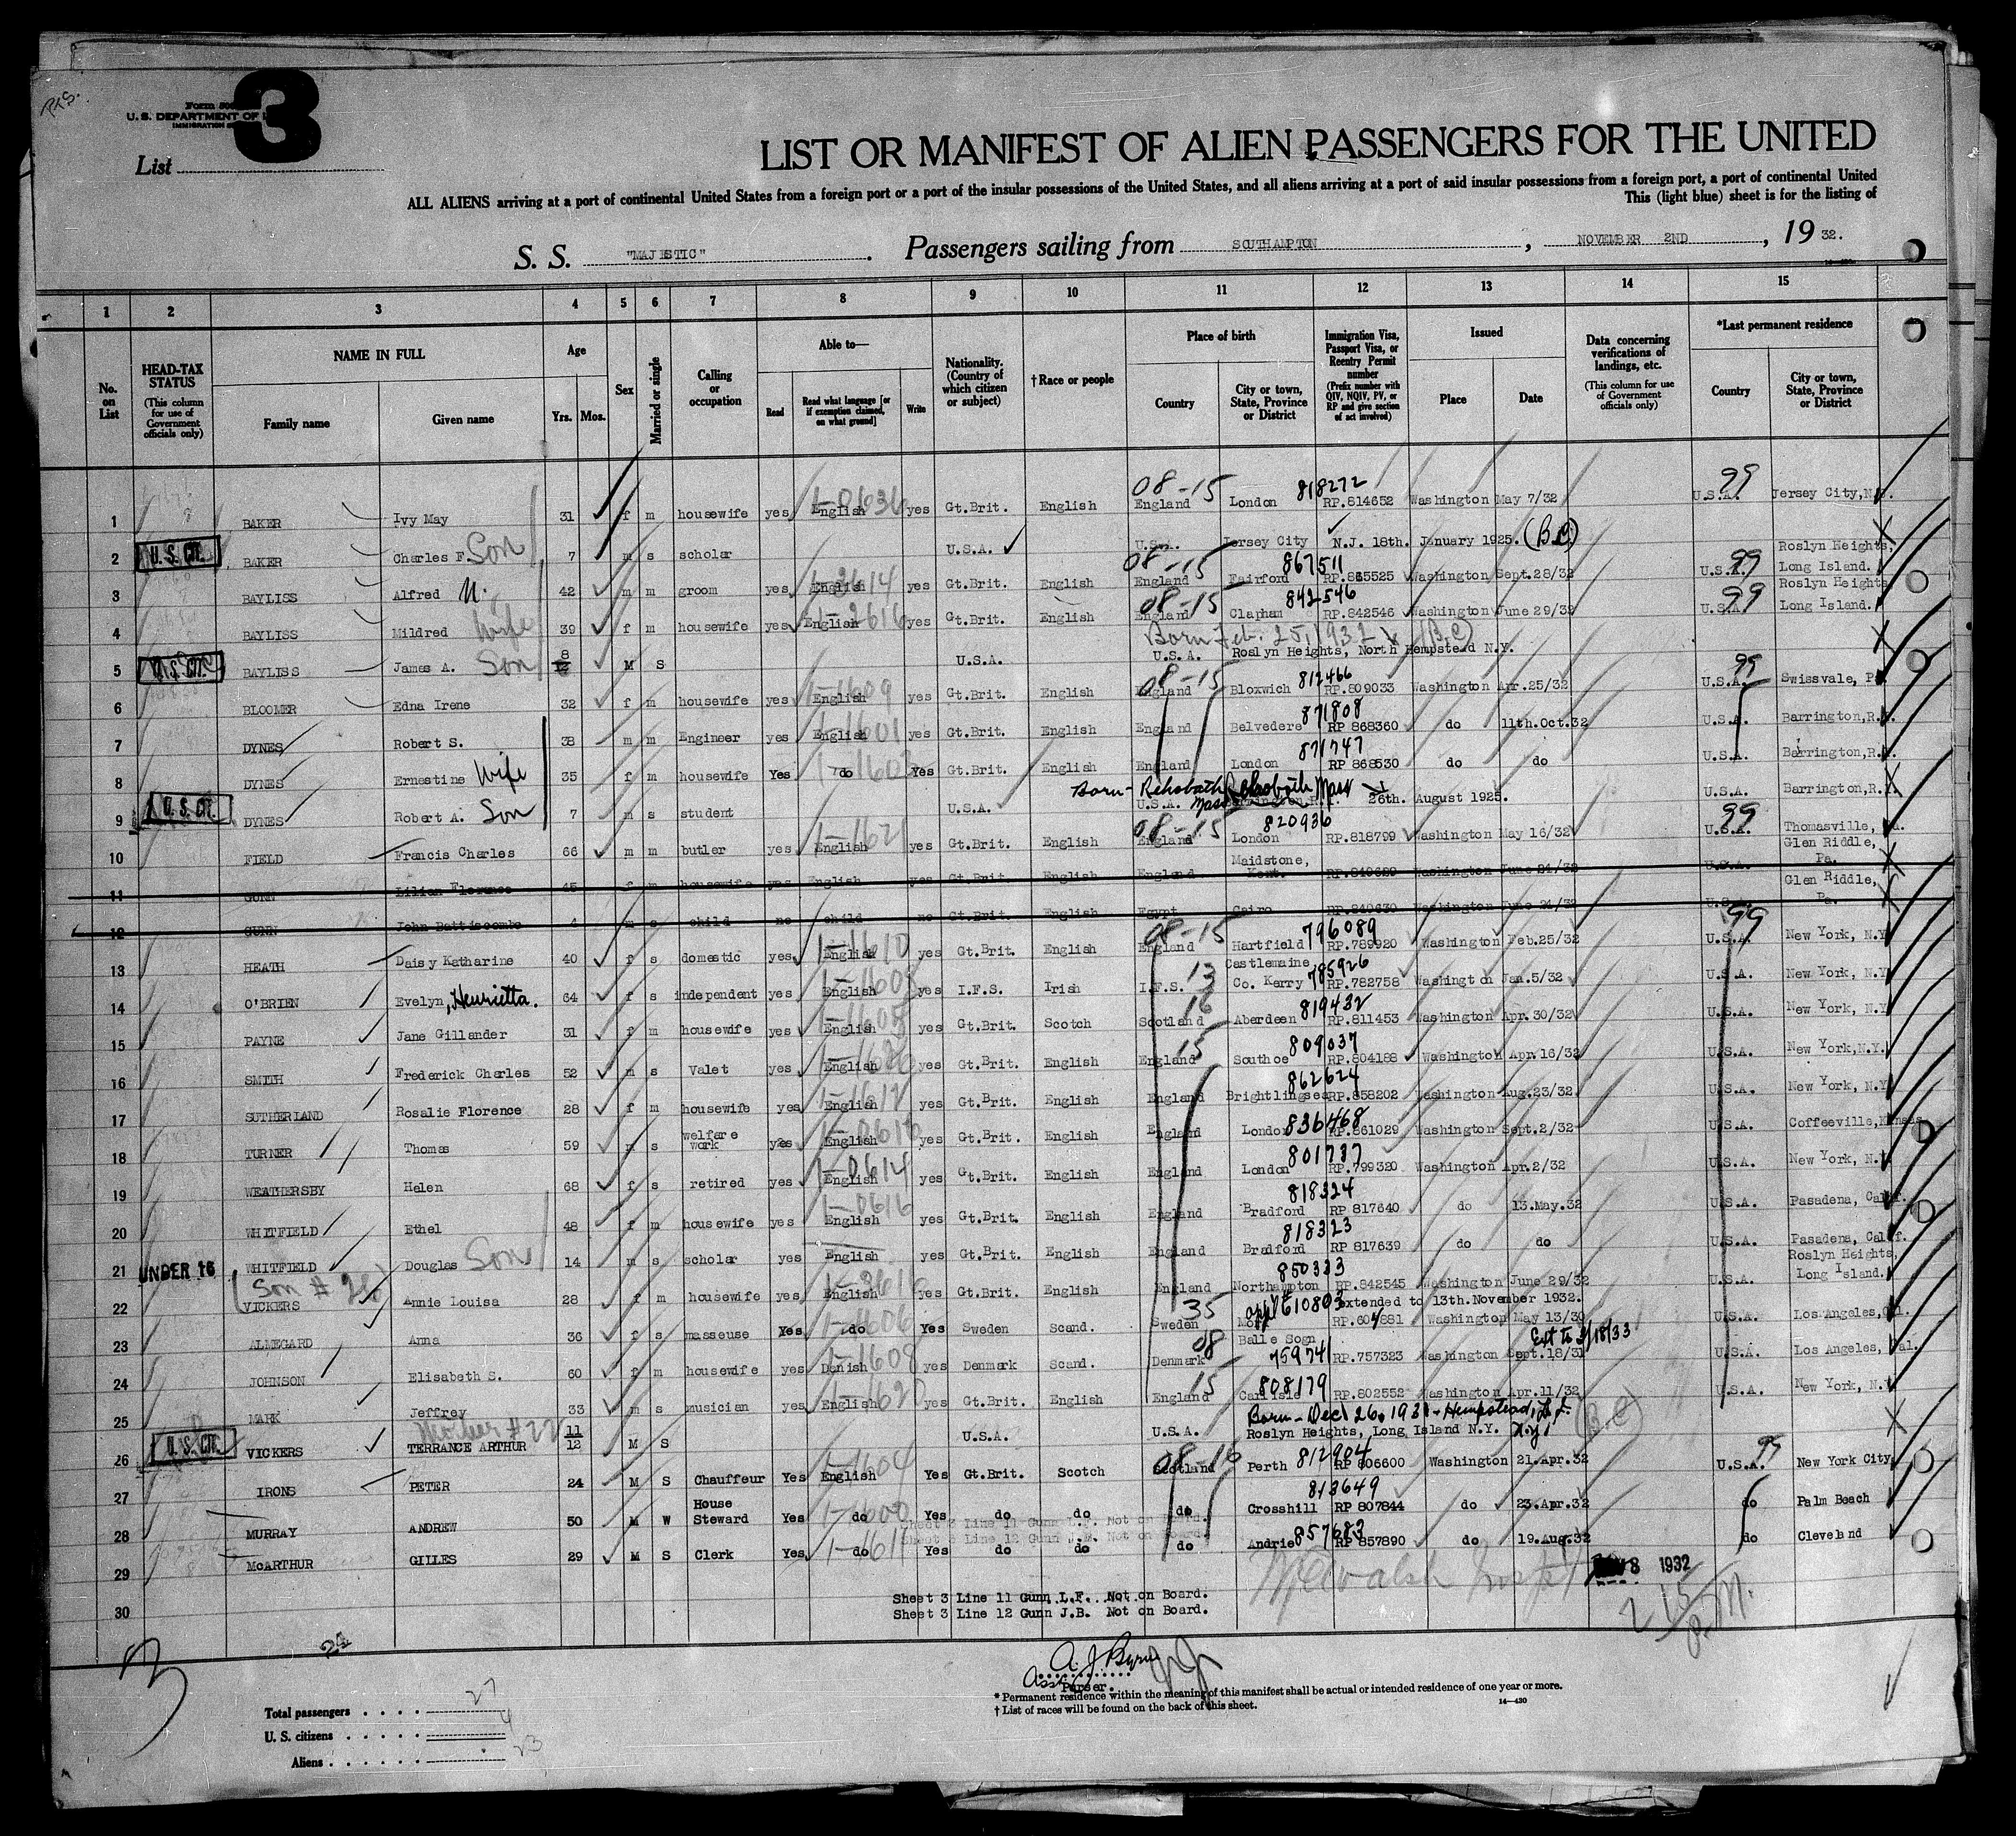 RKS.
Form 500
U. S. DEPARTMENT OF L
IMMIGRATION S
3
List
LIST OR MANIFEST OF ALIEN PASSENGERS FOR THE UNITED
ALL ALIENS arriving at a port of continental United States from a foreign port or a port of the insular possessions of the United States, and all aliens arriving at a port of said insular possessions from a foreign port, a port of continental United
This (light blue) sheet is for the listing of
S. S. "MAJESTIC" . Passengers sailing from SOUTHAMPTON , NOVEMBER 2ND , 19 32.
1 2 3 4 5 6 7 8 9 10 11 12 13 14 15
No. on List
HEAD-TAX STATUS (This column for use of Government officials only)
NAME IN FULL
Family name Given name
Age
Yrs. Mos.
Sex
Married or single
Calling or occupation
Able to—
Read Read what language [or if exemption claimed, on what ground] Write
Nationality. (Country of which citizen or subject)
†Race or people
Place of birth
Country City or town, State, Province or District
Immigration Visa, Passport Visa, or Reentry Permit number (Prefix number with QIV, NQIV, PV, or RP and give section of act involved)
Issued
Place Date
Data concerning verifications of landings, etc. (This column for use of Government officials only)
*Last permanent residence
Country City or town, State, Province or District
08-15 818272 99
1 BAKER Ivy May 31 f m housewife yes English 1-0636 yes Gt.Brit. English England London RP.814652 Washington May 7/32 U.S.A. Jersey City, N.J.
2 U. S. CIT. BAKER Charles F. Son 7 m s scholar U.S.A. U.S.A. Jersey City N.J. 18th. January 1925. (B C)
08-15 867511 99 Roslyn Heights,
3 BAYLISS Alfred N. 42 m m groom yes English yes Gt.Brit. English England Fairford RP.865525 Washington Sept.28/32 U.S.A. Long Island.
08-15 842546 99 Roslyn Heights
4 BAYLISS Mildred Wife 39 f m housewife yes English yes Gt.Brit. English England Clapham RP.842546 Washington June 29/32 U.S.A. Long Island.
Born Feb. 25, 1932 (B C)
5 U. S. CIT. BAYLISS James A. Son 8 12 M S U.S.A. U.S.A. Roslyn Heights, North Hempstead N.Y.
08-15 812466 99
6 BLOOMER Edna Irene 32 f m housewife yes English 1-1609 yes Gt.Brit. English England Bloxwich RP.809033 Washington Apr.25/32 U.S.A. Swissvale, Pa
871808
7 DYNES Robert S. 38 m m Engineer yes English 1-1601 yes Gt.Brit. English England Belvedere RP 868360 do 11th.Oct.32 U.S.A. Barrington, R.I.
871747
8 DYNES Ernestine Wife 35 f m housewife Yes do Yes Gt.Brit. English England London RP 868530 do do U.S.A. Barrington, R.I.
Born- Rehobath Mass Rehoboth Mass
9 U. S. CIT. DYNES Robert A. Son 7 m s student U.S.A. U.S.A. 26th. August 1925. U.S.A. Barrington, R.I.
08-15 820936 99
10 FIELD Francis Charles 66 m m butler yes English 1-1621 yes Gt.Brit. English England London RP.818799 Washington May 16/32 U.S.A. Thomasville,
Maidstone, Glen Riddle,
11 GUNN Lilian Florence 45 f m housewife yes English yes Gt.Brit. English England Kent. RP.840629 Washington June 21/32 U.S.A. Pa.
Glen Riddle,
12 GUNN John Battiscombe 4 m s child no child no Gt.Brit. English Egypt Cairo RP.840630 Washington June 21/32 U.S.A. Pa.
08-15 796089 99
13 HEATH Daisy Katharine 40 f s domestic yes English 1-1610 yes Gt.Brit. English England Hartfield RP.789920 Washington Feb.25/32 U.S.A. New York, N.Y
13 Castlemaine 785926
14 O'BRIEN Evelyn, Henrietta. 64 f s independent yes English yes I.F.S. Irish I.F.S. Co. Kerry RP.782758 Washington Jan.5/32 U.S.A. New York, N.Y
16 819432
15 PAYNE Jane Gillander 31 f m housewife yes English yes Gt.Brit. Scotch Scotland Aberdeen RP.811453 Washington Apr.30/32 U.S.A. New York, N.Y
15 809037
16 SMITH Frederick Charles 52 m s Valet yes English yes Gt.Brit. English England Southoe RP.804188 Washington Apr.16/32 U.S.A. New York, N.Y.
862624
17 SUTHERLAND Rosalie Florence 28 f m housewife yes English yes Gt.Brit. English England Brightlingsea RP.858202 Washington Aug.23/32 U.S.A. New York, N.Y
836468
18 TURNER Thomas 59 m s welfare work yes English yes Gt.Brit. English England London RP.861029 Washington Sept.2/32 U.S.A. Coffeeville, Kansas
801737
19 WEATHERSBY Helen 68 f s retired yes English 1-0614 yes Gt.Brit. English England London RP.799320 Washington Apr.2/32 U.S.A. New York, N.Y
818324
20 WHITFIELD Ethel 48 f m housewife yes English 1-0616 yes Gt.Brit. English England Bradford RP 817640 do 13.May.32 U.S.A. Pasadena, Calif.
818323
21 UNDER 16 WHITFIELD Douglas Son 14 m s scholar yes English yes Gt.Brit. English England Bradford RP 817639 do do U.S.A. Pasadena, Calif.
(Son # 26) 850333 Roslyn Heights,
22 VICKERS Annie Louisa 28 f m housewife yes English yes Gt.Brit. English England Northampton RP.842545 Washington June 29/32 U.S.A. Long Island.
35 appl# 610803 extended to 13th.November 1932.
23 ALMEGARD Anna 36 f s masseuse Yes do 1-1606 Yes Sweden Scand. Sweden RP.604881 Washington May 13/30 U.S.A. Los Angeles, Cal.
08 Balle Sogn 75974 Ext to 3/18/33
24 JOHNSON Elisabeth S. 60 f m housewife yes Danish 1-1608 yes Denmark Scand. Denmark RP.757323 Washington Sept.18/31 U.S.A. Los Angeles, Cal.
15 808179
25 MARK Jeffrey 33 m s musician yes English yes Gt.Brit. English England Carlisle RP.802552 Washington Apr.11/32 U.S.A. New York, N.Y
Mother # 22 Born - Dec 26, 1931 - Hempstead, L.I. N.Y. (B C)
26 U. S. CIT. VICKERS TERRANCE ARTHUR 11 12 M S U.S.A. U.S.A. Roslyn Heights, Long Island N.Y.
08-16 812904 99
27 IRONS PETER 24 M S Chauffeur Yes English 1-1604 Yes Gt.Brit. Scotch Scotland Perth RP 806600 Washington 21.Apr.32 U.S.A. New York City
813649
28 MURRAY ANDREW 50 M W House Steward Yes do 1-1600 Yes do do do Crosshill RP 807844 do 23.Apr.32 do Palm Beach
Sheet 3 Line 11 Gunn L.F. Not on Board.
Sheet 3 Line 12 Gunn J.B. Not on Board.
857683
29 McARTHUR GILLES 29 M S Clerk Yes do 1-1611 Yes do do do Andrie RP 857890 do 19.Aug.32 do Cleveland
NOV 8 1932
30
Sheet 3 Line 11 Gunn L.F. Not on Board.
Sheet 3 Line 12 Gunn J.B. Not on Board.
2 15 P.M.
3
A J Byrne
Asst. Purser.
Total passengers 27
U. S. citizens 4
Aliens 23
* Permanent residence within the meaning of this manifest shall be actual or intended residence of one year or more.
† List of races will be found on the back of this sheet.
14—430